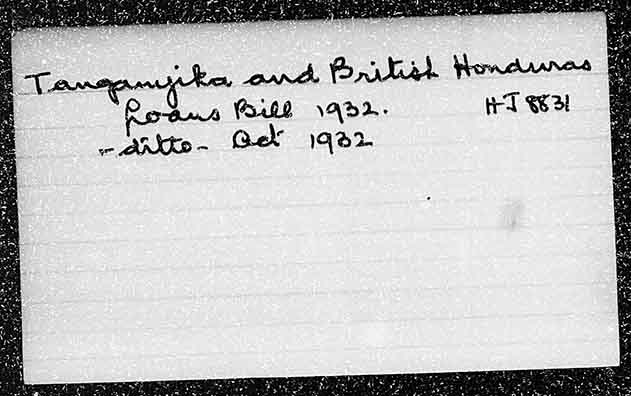 Tanganyika and British Honduras
Loans Bill 1932. HJ 8831
-ditto- Act 1932